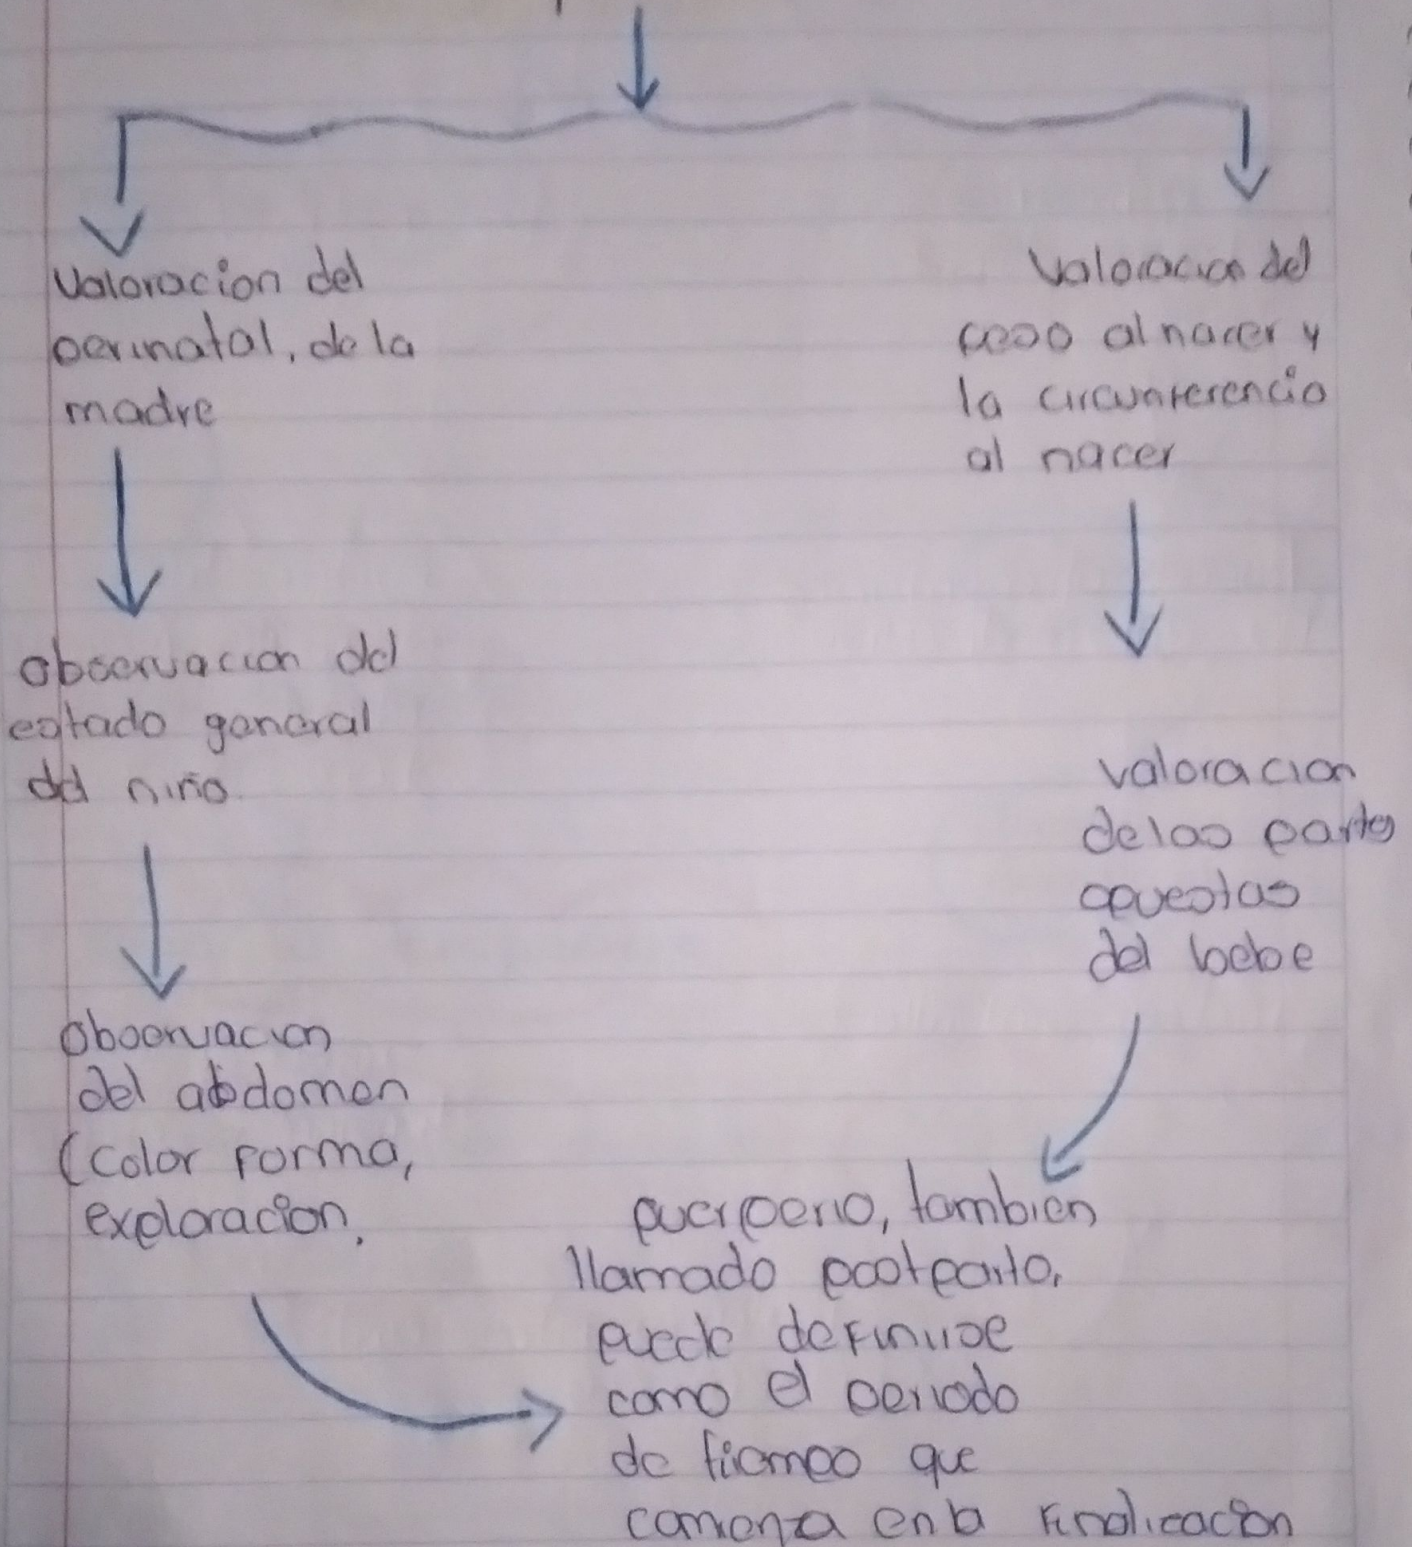 Valoracion del
perinatal, de la
madre
observacion del
estado general
del niño
Observacion
del abdomen
(Color forma,
exploracion,
Valoracion del
peso al nacer y
la circunferencia
al nacer
valoracion
de las partes
opuestas
del bebe
puerperio, tambien
llamado postparto,
puede definirse
como el periodo
de tiempo que
comienza en la finalizacion